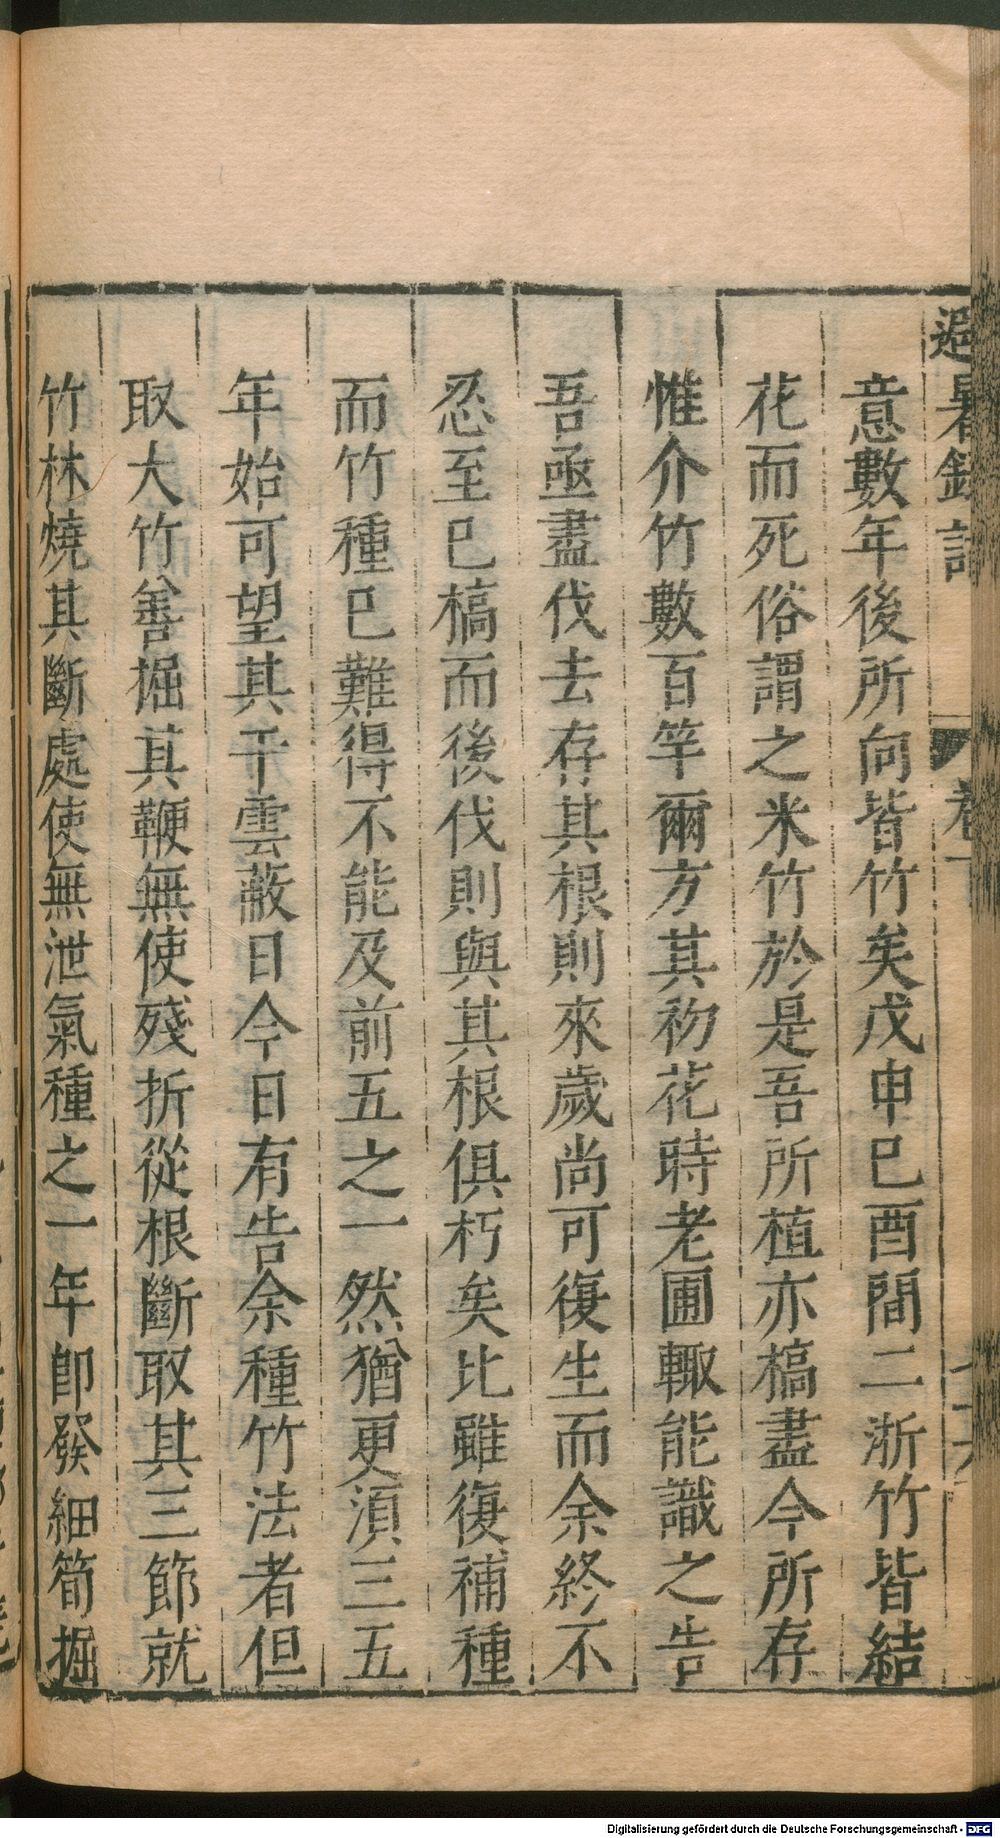 避暑錄話 卷一
意數年後所向皆竹矣戊申已酉間二浙竹皆結
花而死俗謂之米竹於是吾所植亦槁盡今所存
惟介竹數百竿爾方其初花時老圃輙能識之告
吾亟盡伐去存其根則來歲尚可復生而余終不
忍至已槁而後伐則與其根俱朽矣比雖復補種
而竹種已難得不能及前五之一然猶更須三五
年始可望其干雲蔽日今日有告余種竹法者但
取大竹善掘其鞭無使殘折從根斷取其三節就
竹林燒其斷處使無泄氣種之一年即發細筍掘
Digitalisierung gefördert durch die Deutsche Forschungsgemeinschaft - DFG